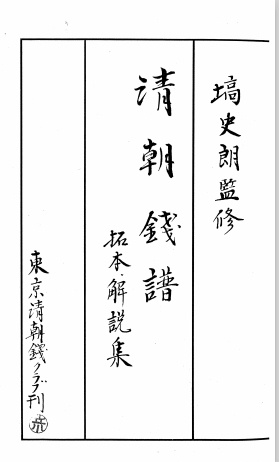 塙史朗監修
清朝錢譜
拓本・解説集
東京清朝錢クラブ刊